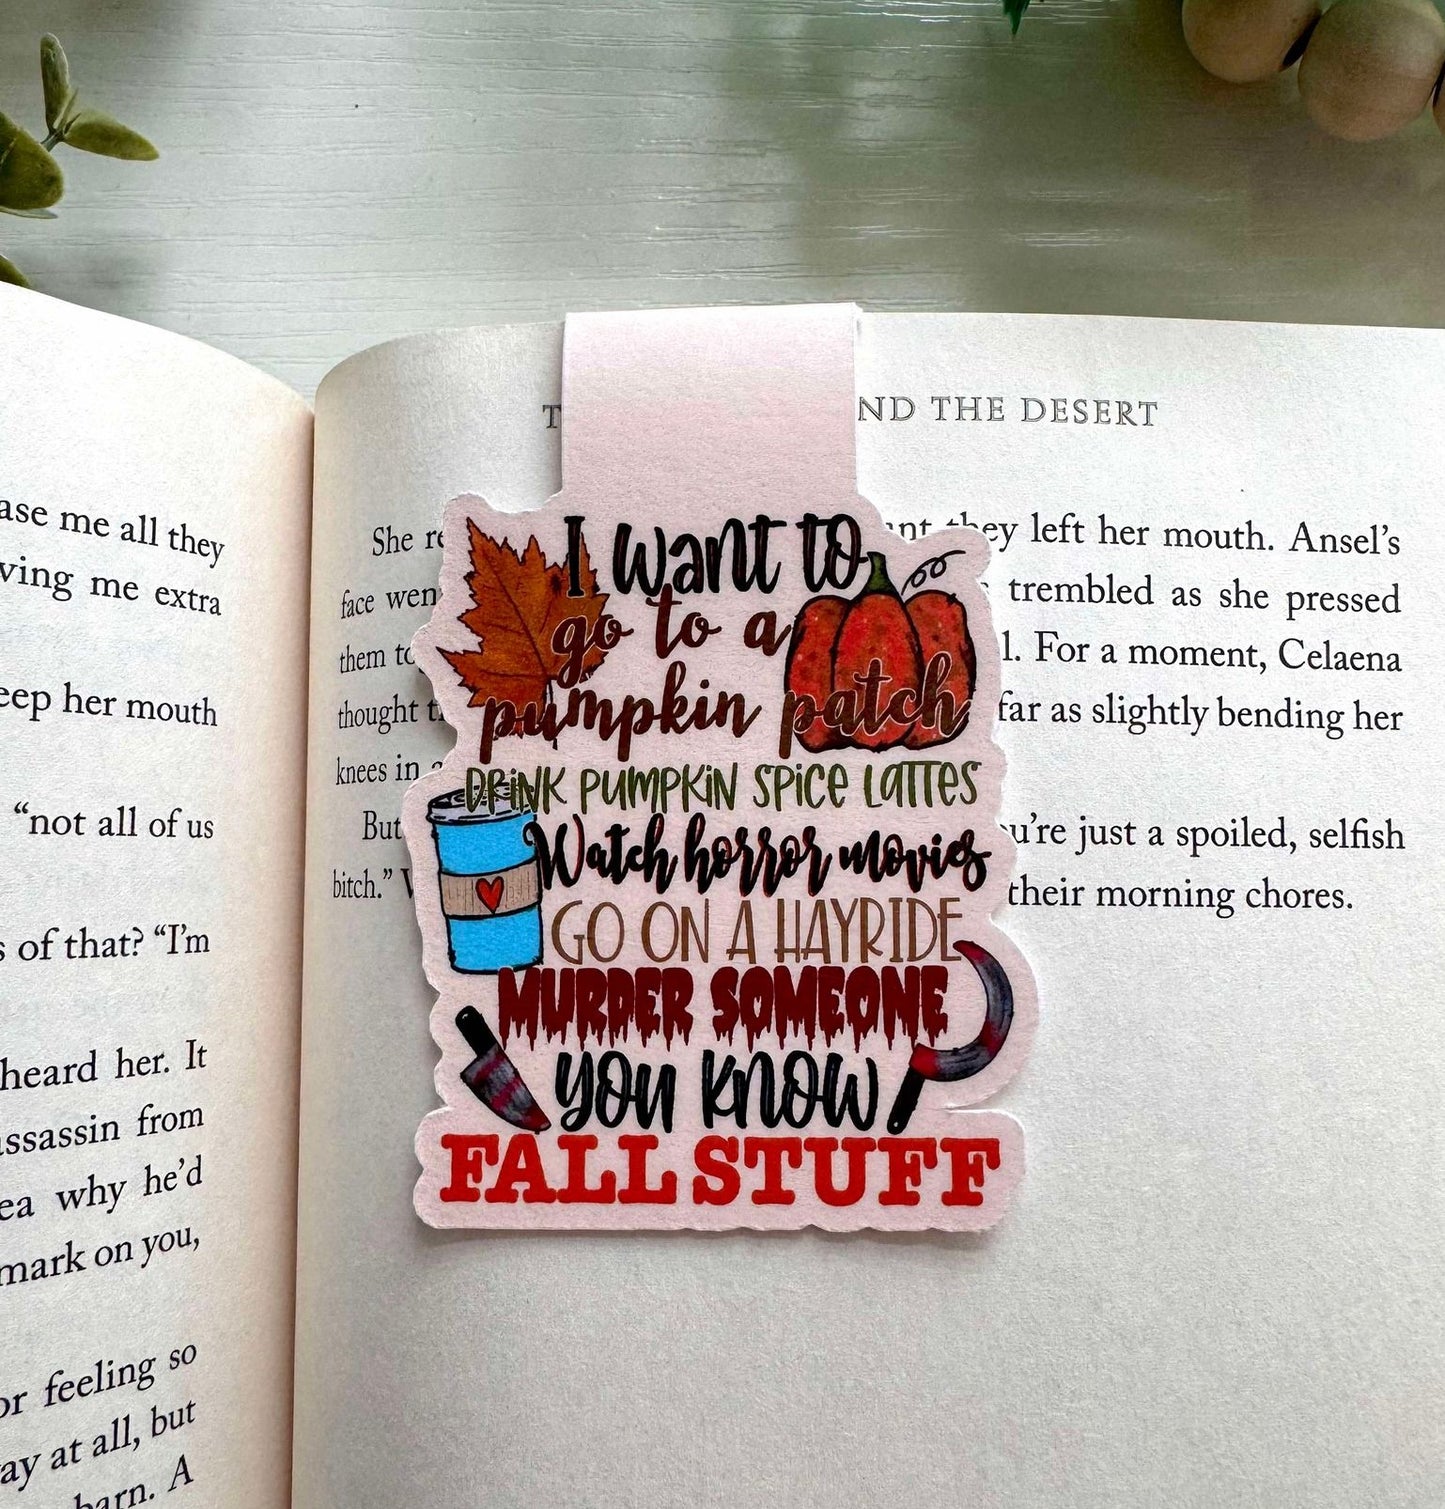 ase me all they
ving me extra
eep her mouth
"not all of us
s of that? "I'm
heard her. It
assassin from
ea why he'd
mark on you,
or feeling so
ay at all, but
barn. A
ND THE DESERT
She re
they left her mouth. Ansel's
face wen
trembled as she pressed
them to
l. For a moment, Celaena
thought t
far as slightly bending her
knees in
But
u're just a spoiled, selfish
bitch."
their morning chores.
I want to
go to a
pumpkin patch
DRINK PUMPKIN SPICE LATTES
Watch horror movies
GO ON A HAYRIDE
MURDER SOMEONE
you know
FALL STUFF